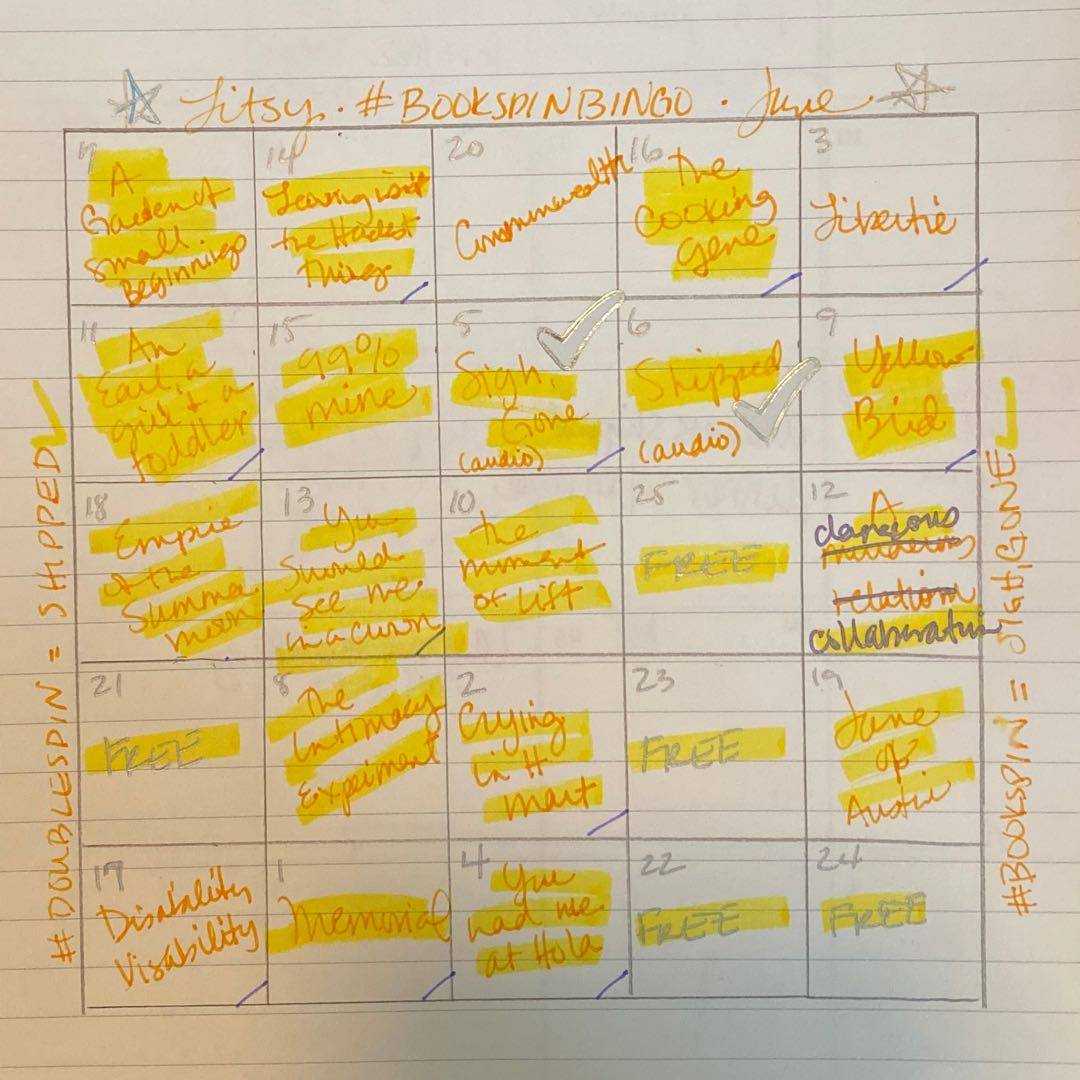 Litsy · #BOOKSPINBINGO · June
7
A
Garden of
small
Beginnings
14
Leaving isn't
the Hardest
Thing
20
Commonwealth
16
The
Cooking
gene
3
Libertie
11
An
Earl, a
girl + a
toddler
15
99%
mine
5
Sigh,
Gone
(audio)
6
Shipped
(audio)
9
Yellow
Bird
18
Empire
of the
Summer
moon
13
You
Should
See me
in a crown
10
The
moment
of Lift
25
FREE
12
A
dangerous
murderous
relation
collaboration
21
FREE
8
The
Intimacy
Experiment
2
Crying
in H
Mart
23
FREE
19
Jane
of
Austin
17
Disability
Visability
1
Memorial
4
You
had me
at Hola
22
FREE
24
FREE
#DOUBLESPIN = SHIPPED
#BOOKSPIN = SIGH, GONE